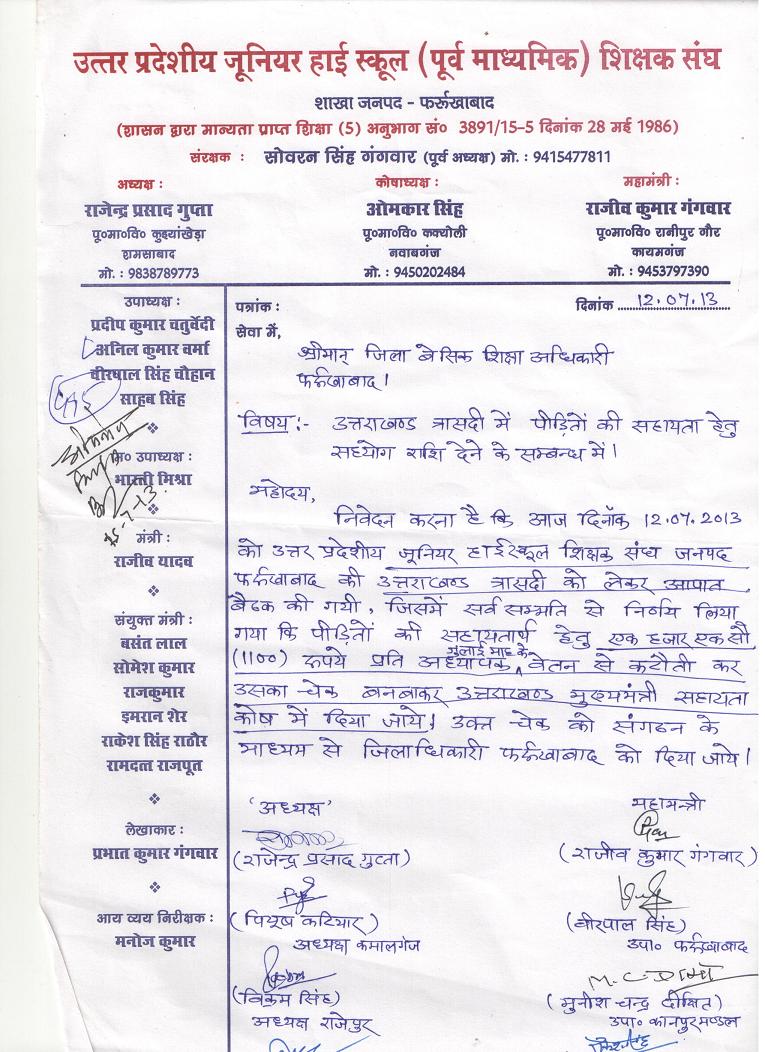 उत्तर प्रदेशीय जूनियर हाई स्कूल (पूर्व माध्यमिक) शिक्षक संघ
शाखा जनपद - फर्रूखाबाद
(शासन द्वारा मान्यता प्राप्त शिक्षा (5) अनुभाग सं० 3891/15-5 दिनांक 28 मई 1986)
संरक्षक : सोवरन सिंह गंगवार (पूर्व अध्यक्ष) मो. : 9415477811
अध्यक्ष :
राजेन्द्र प्रसाद गुप्ता
पू०मा०वि० कुइयांखेड़ा
शमसाबाद
मो. : 9838789773
कोषाध्यक्ष :
ओमकार सिंह
पू०मा०वि० कक्योली
नवाबगंज
मो. : 9450202484
महामंत्री :
राजीव कुमार गंगवार
पू०मा०वि० रानीपुर गौर
कायमगंज
मो. : 9453797390
उपाध्यक्ष :
प्रदीप कुमार चतुर्वेदी
अनिल कुमार वर्मा
वीरपाल सिंह चौहान
साहब सिंह
म० उपाध्यक्ष :
भारती मिश्रा
मंत्री :
राजीव यादव
संयुक्त मंत्री :
बसंत लाल
सोमेश कुमार
राजकुमार
इमरान शेर
राकेश सिंह राठौर
रामदत्त राजपूत
लेखाकार :
प्रभात कुमार गंगवार
आय व्यय निरीक्षक :
मनोज कुमार
पत्रांक :
दिनांक 12.07.13
सेवा में,
श्रीमान् जिला बेसिक शिक्षा अधिकारी
फर्रुखाबाद।
विषय :- उत्तराखण्ड त्रासदी में पीड़ितों की सहायता हेतु
सहयोग राशि देने के सम्बन्ध में।
महोदय,
निवेदन करना है कि आज दिनाँक 12.07.2013
को उत्तर प्रदेशीय जूनियर हाईस्कूल शिक्षक संघ जनपद
फर्रुखाबाद की उत्तराखण्ड त्रासदी को लेकर आपात
बैठक की गयी, जिसमें सर्व सम्मति से निर्णय लिया
गया कि पीड़ितों की सहायतार्थ हेतु एक हजार एक सौ
(1100) रुपये प्रति अध्यापक जुलाई माह के वेतन से कटौती कर
उसका चेक बनबाकर उत्तराखण्ड मुख्यमंत्री सहायता
कोष में दिया जाये। उक्त चेक को संगठन के
माध्यम से जिलाधिकारी फर्रुखाबाद को दिया जाये।
'अध्यक्ष'
(राजेन्द्र प्रसाद गुप्ता)
महामन्त्री
(राजीव कुमार गंगवार)
(पियूष कटियार)
अध्यक्ष कमालगंज
(वीरपाल सिंह)
उपा० फर्रुखाबाद
(विक्रम सिंह)
अध्यक्ष राजेपुर
(मुनीश चन्द्र दीक्षित)
उपा० कानपुर मण्डल